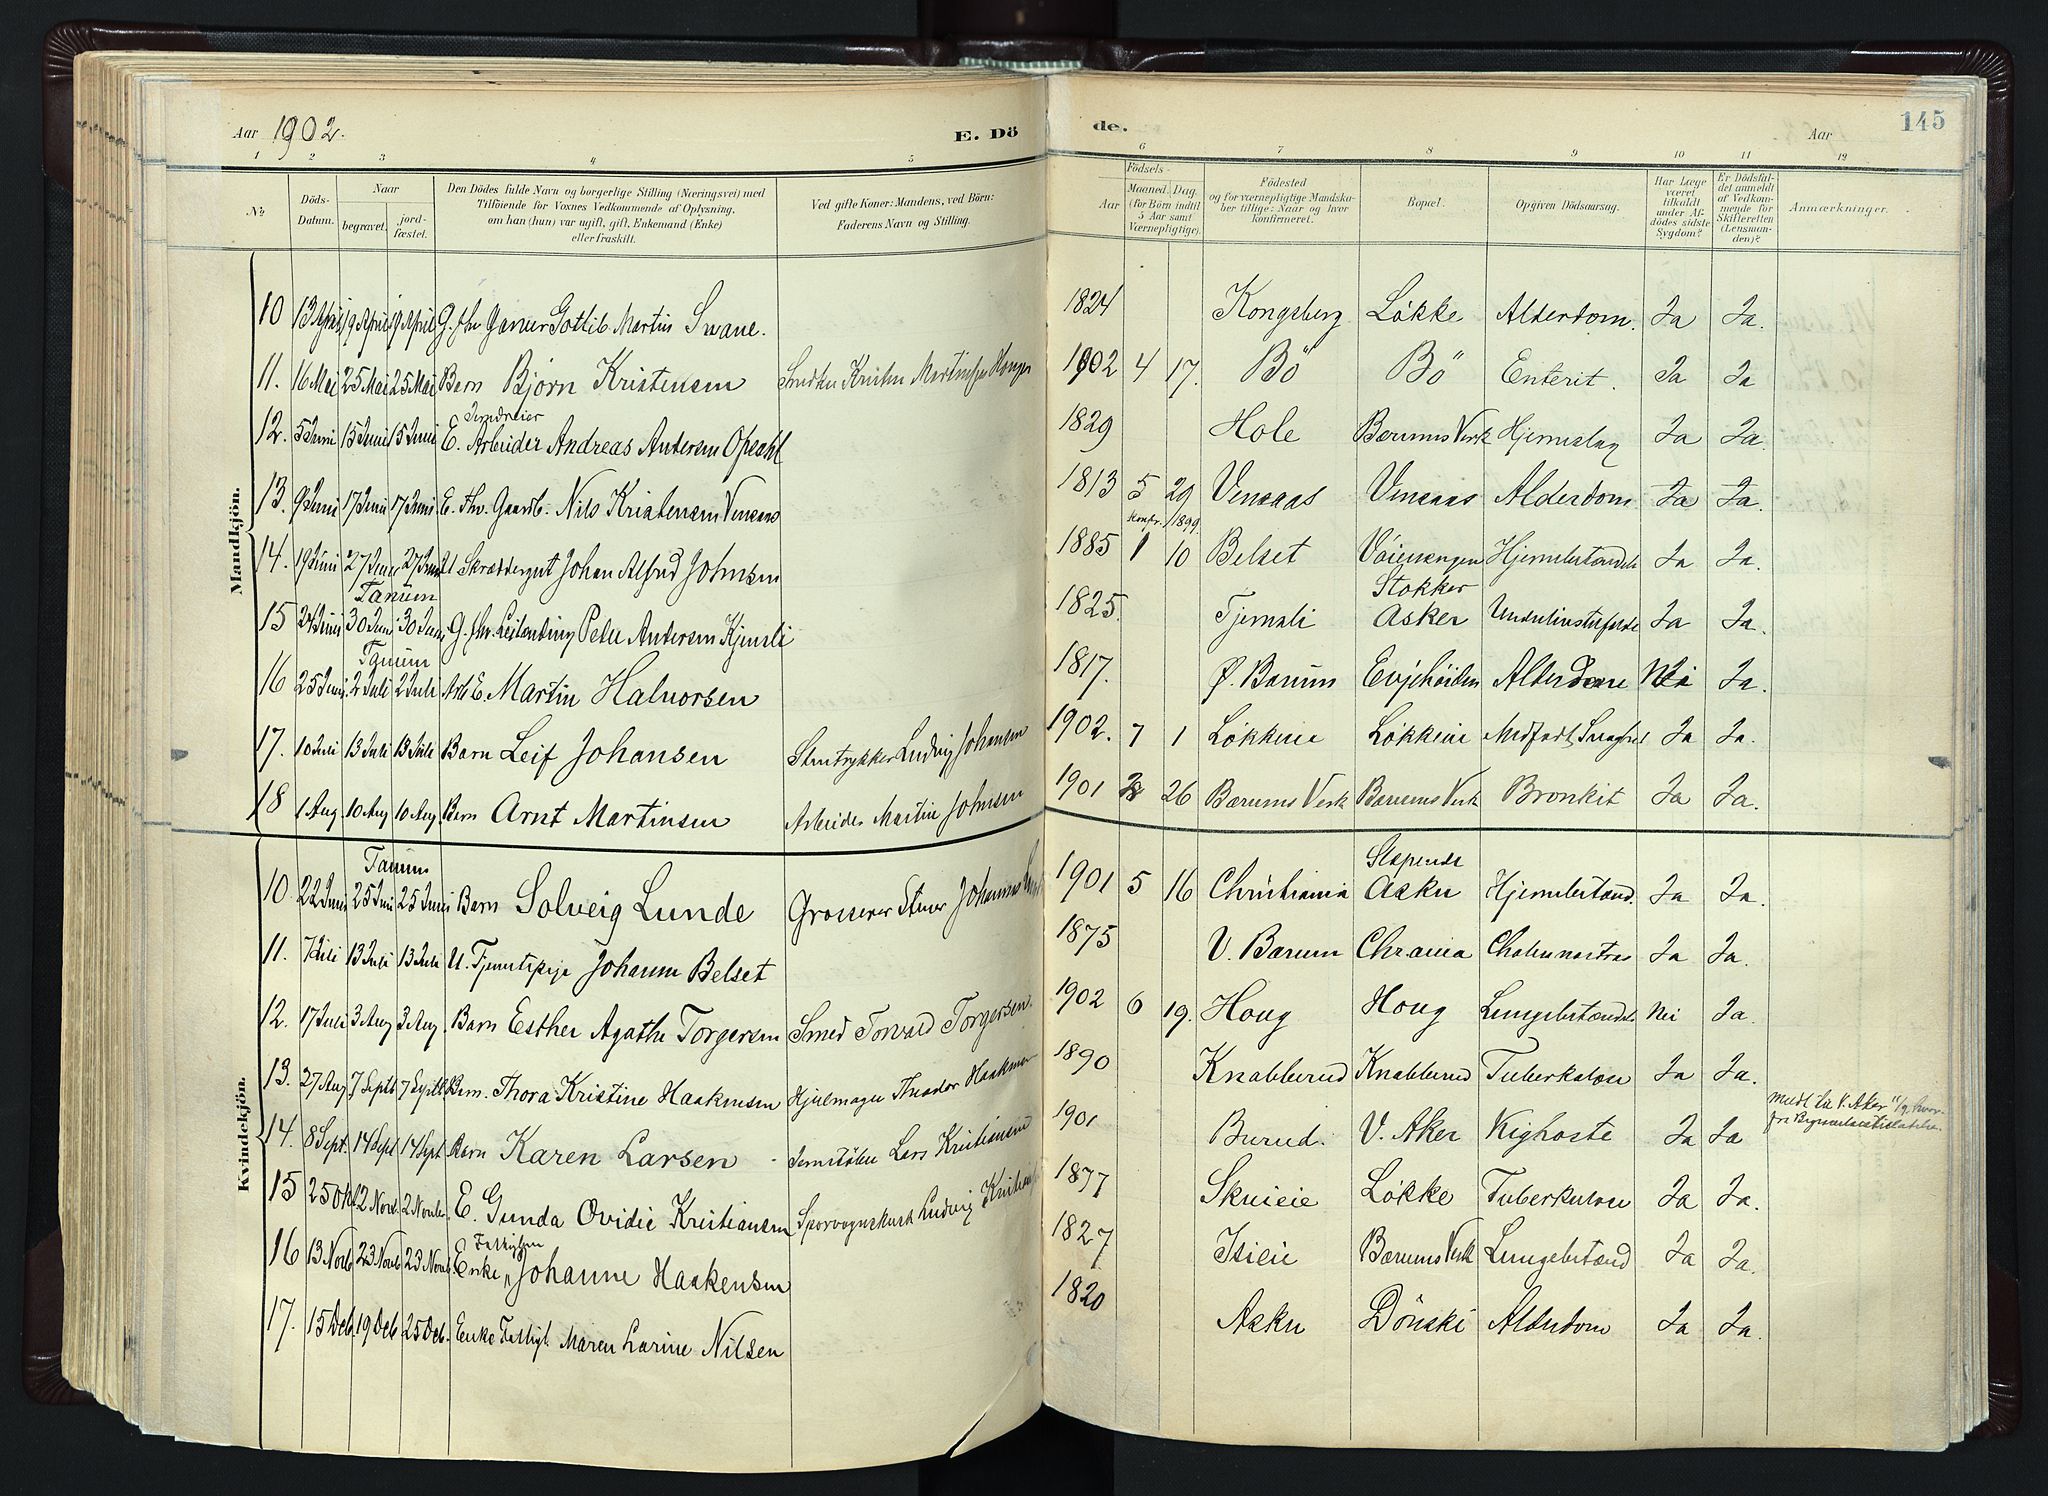 Aar 1902. E. Döde. Aar 145
1 2 3 4 5 6 7 8 9 10 11 12
№
Döds-Datum.
Naar
begravet.
jord-fæstet.
Den Dödes fulde Navn og borgerlige Stilling (Næringsvei) med
Tilföiende for Voxnes Vedkommende af Oplysning,
om han (hun) var ugift, gift, Enkemand (Enke)
eller fraskilt.
Ved gifte Koner: Mandens, ved Börn:
Faderens Navn og Stilling.
Födsels-
Aar
Maaned. Dag.
(for Börn indtil
5 Aar samt
Værnepligtige).
Födested
og for værnepligtige Mandsku-
ber tillige: Naar og hvor
konfirmeret.
Bopæl.
Opgiven Dödsaarsag.
Har Læge
været
tilkaldt
under Af-
dödes sidste
Sygdom?
Er Dödsfal-
det anmeldt
af Vedkom-
mende for
Skifteretten
(Lensman-
den)?
Anmærkninger.
Mandkjön.
10 13 April 19 April 19 April G. Gottlib Martin Svane. 1824 Kongsberg Løkke Alderdom. Ja Ja.
11. 16 Mai 25 Mai 25 Mai Barn Bjørn Kristensen 1902 4 17. Bö Bö Enterit. Ja Ja
12. 5 Juni 15 Juni 15 Juni E. Arbeider Andreas Andersen Opsahl 1829 Hole Bærums Verk Hjerneslag Ja Ja.
13. 9 Juni 17 Juni 17 Juni E. Fhv. Gaardb. Nils Kristensen Vensaas 1813 5 29 Vensaas Vensaas Alderdom Ja Ja.
Konfr. 1899
14. 19 Juni 27 Juni 27 Juni U Skræddergut Johan Alfred Johnsen 1885 1 10 Belset Hjernebetændels Ja Ja.
Tanum Stokker
15 24 Juni 30 Juni 30 Juni G. fhv. Leilending Peder Andersen 1825. Asker Ja Ja.
Tanum
16 25 Juni 2 Juli 2 Juli Arb. E. Martin Halvorsen 1817. Ø. Bærum Evjehøiden Alderdom Nei Ja.
17. 10 Juli 13 Juli 13 Juli Barn Leif Johansen Stentrykker Ludvig Johansen 1902. 7 1 Løkkeie Løkkeie Medfødt Svaghed Ja Ja.
18 1 Aug. 10 Aug 10 Aug. Barn Arnt Martinsen Arbeider Martin Johnsen 1901 26 Bærums Verk Bærums Verk Bronkit Ja Ja.
Kvindekjön.
Tanum Slependen
10. 22 Juni 25 Juni 25 Juni Barn Solveig Lunde Grosserer Johannes 1901 5 16 Christiania Asker Hjernebetænd. Ja Ja.
11. 7 Juli 13 Juli 13 Juli U. Tjenestepige Johanne Belset 1875 V. Bærum Chrania Ja Ja.
12. 17 Juli 3 Aug 3 Aug. Barn Esther Agathe Torgersen Smed Torvald Torgersen. 1902 6 19. Houg Houg Lungebetændels. Nei Ja.
13. 27 Aug 7 Septb 7 Septb Barn. Thora Kristine Haakensen Hjulmager Theodor Haakensen 1890 Knabberud Knabberud Tuberkulose Ja Ja.
14. 8 Sept. 14 Sept 14 Sept Barn Karen Larsen Jernstøber Lars Kristiansen 1901 Burud. V. Aker Kighoste Ja Ja
15 25 Okt 2 Novb. 2 Novbr. E. Gunda Ovidie Kristiansen Sporvognskusk Ludvig 1877 Skuieie Løkke Tuberkulose Ja Ja.
16 13 Novb 23 Novb 23 Novb. Enke Johanne Haakensen 1827 Isieie Bærums Verk Lungebetænd Ja Ja.
17. 15 Deb. 19 Deb 25 Deb. Enke Fattigl. Maren Larine Nilsen 1820 Asker Dönski Alderdom Ja Ja.